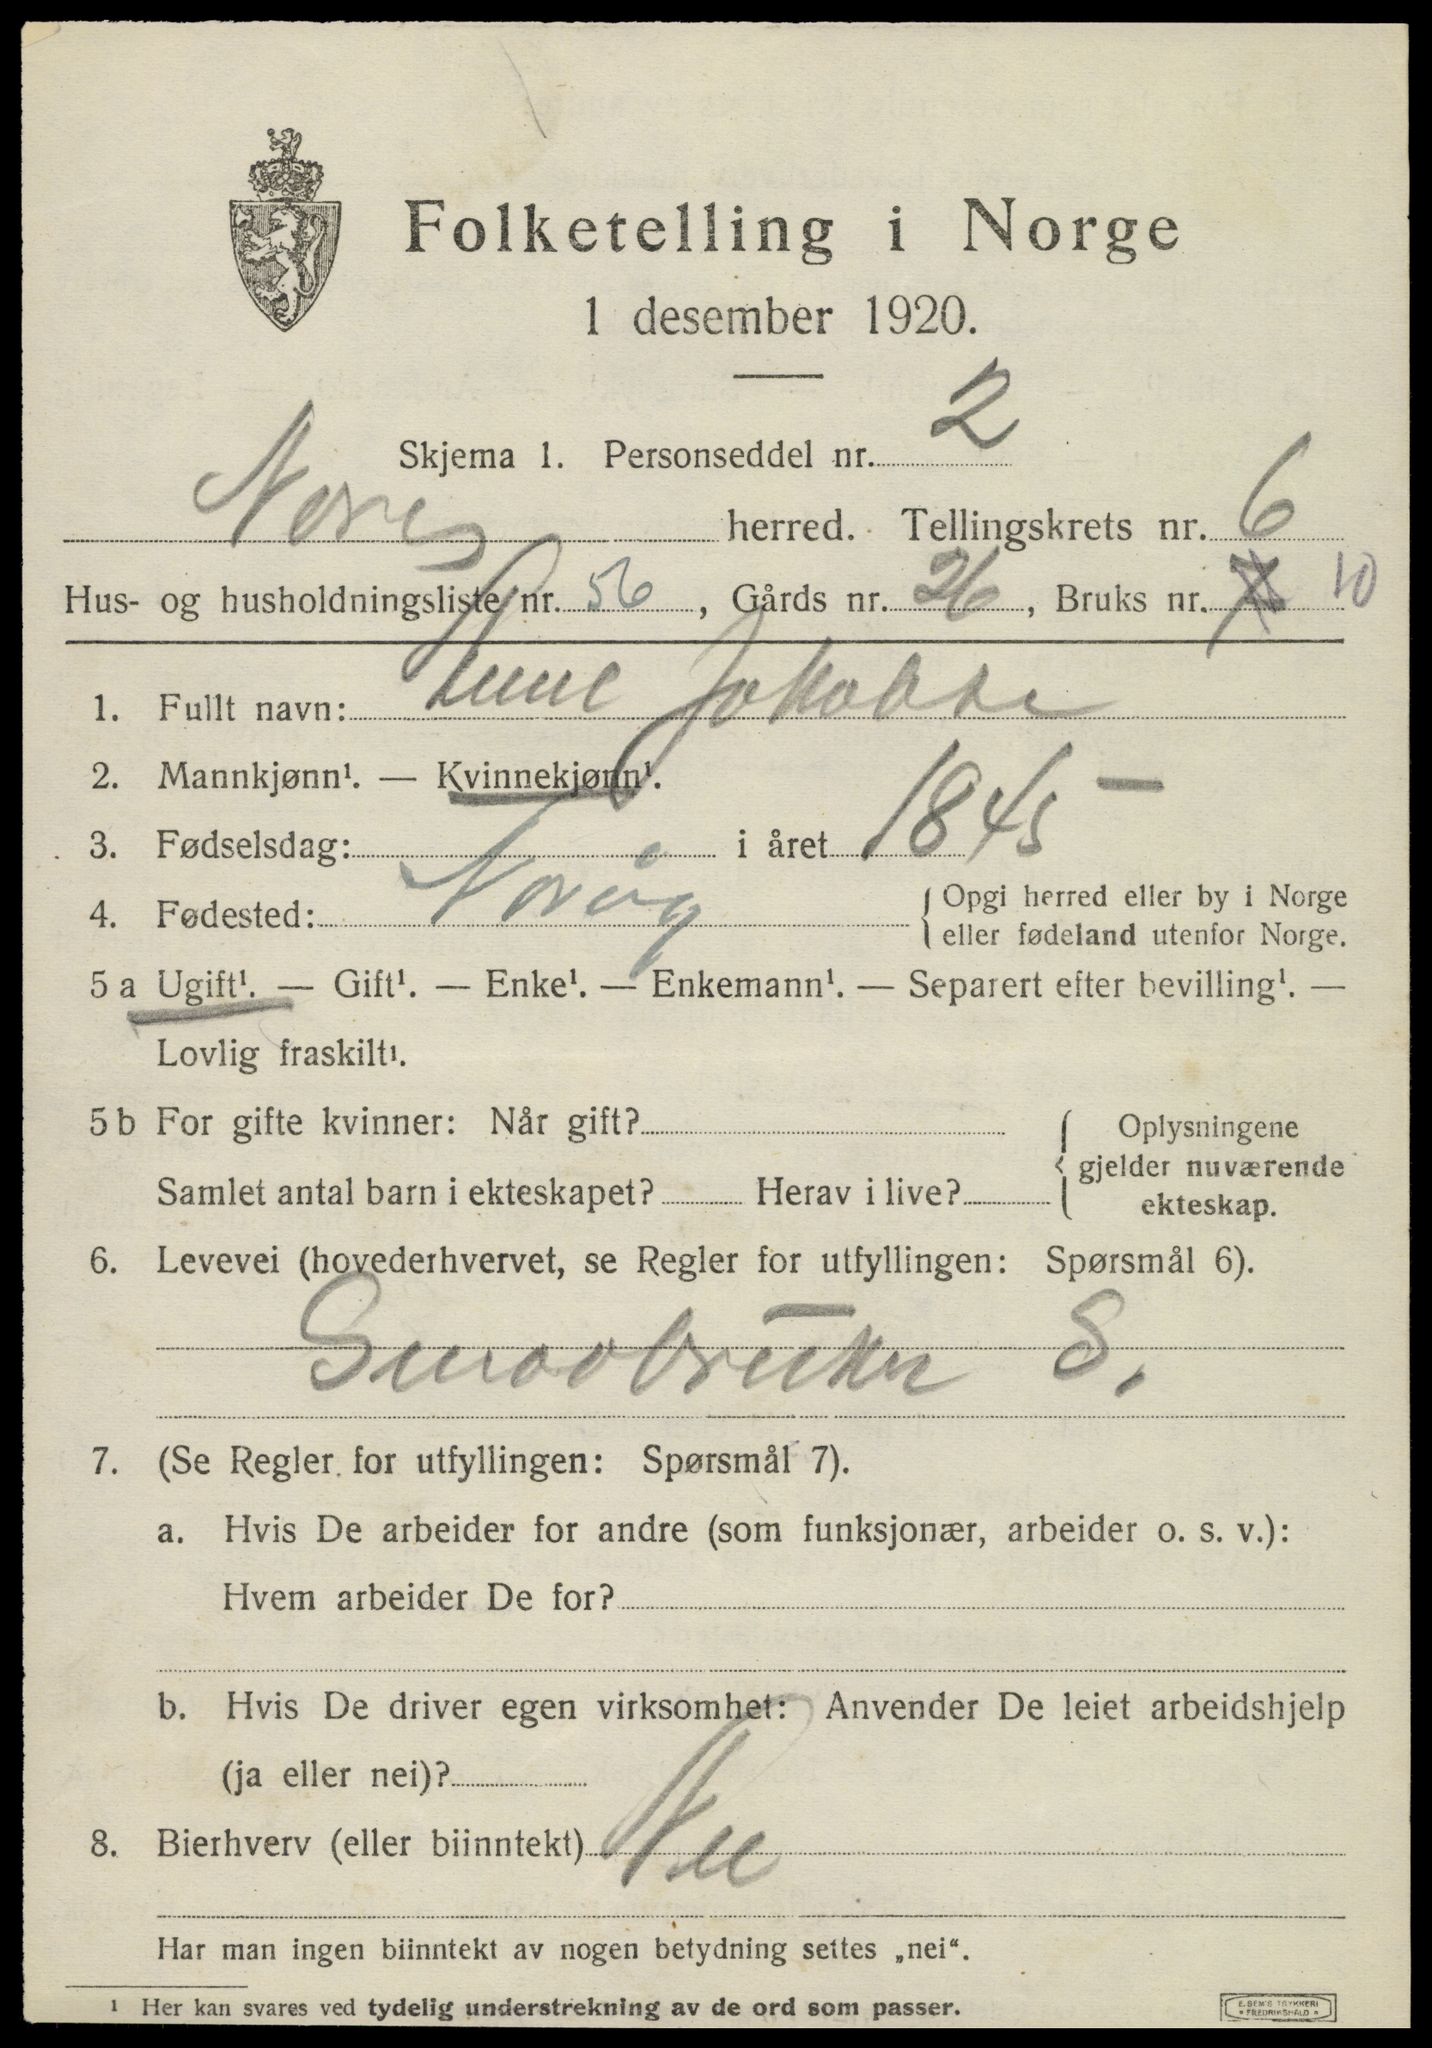 Folketelling i Norge
1 desember 1920.
Skjema 1. Personseddel nr. 2
herred. Tellingskrets nr. 6
Hus- og husholdningsliste nr. 56, Gårds nr. 26, Bruks nr. 10
1. Fullt navn:
2. Mannkjønn¹. — Kvinnekjønn¹.
3. Fødselsdag: i året 1845 —
4. Fødested:
{ Opgi herred eller by i Norge
eller fødeland utenfor Norge.
5 a Ugift¹. — Gift¹. — Enke¹. — Enkemann¹. — Separert efter bevilling¹. —
Lovlig fraskilt¹.
5 b For gifte kvinner: Når gift?
Samlet antal barn i ekteskapet? Herav i live?
{ Oplysningene
gjelder nuværende
ekteskap.
6. Levevei (hovederhvervet, se Regler for utfyllingen: Spørsmål 6).
S.
7. (Se Regler for utfyllingen: Spørsmål 7).
a. Hvis De arbeider for andre (som funksjonær, arbeider o. s. v.):
Hvem arbeider De for?
b. Hvis De driver egen virksomhet: Anvender De leiet arbeidshjelp
(ja eller nei)?
8. Bierhverv (eller biinntekt) Nei
Har man ingen biinntekt av nogen betydning settes „nei“.
¹ Her kan svares ved tydelig understrekning av de ord som passer.
E. SEM'S TRYKKERI
FREDRIKSHALD